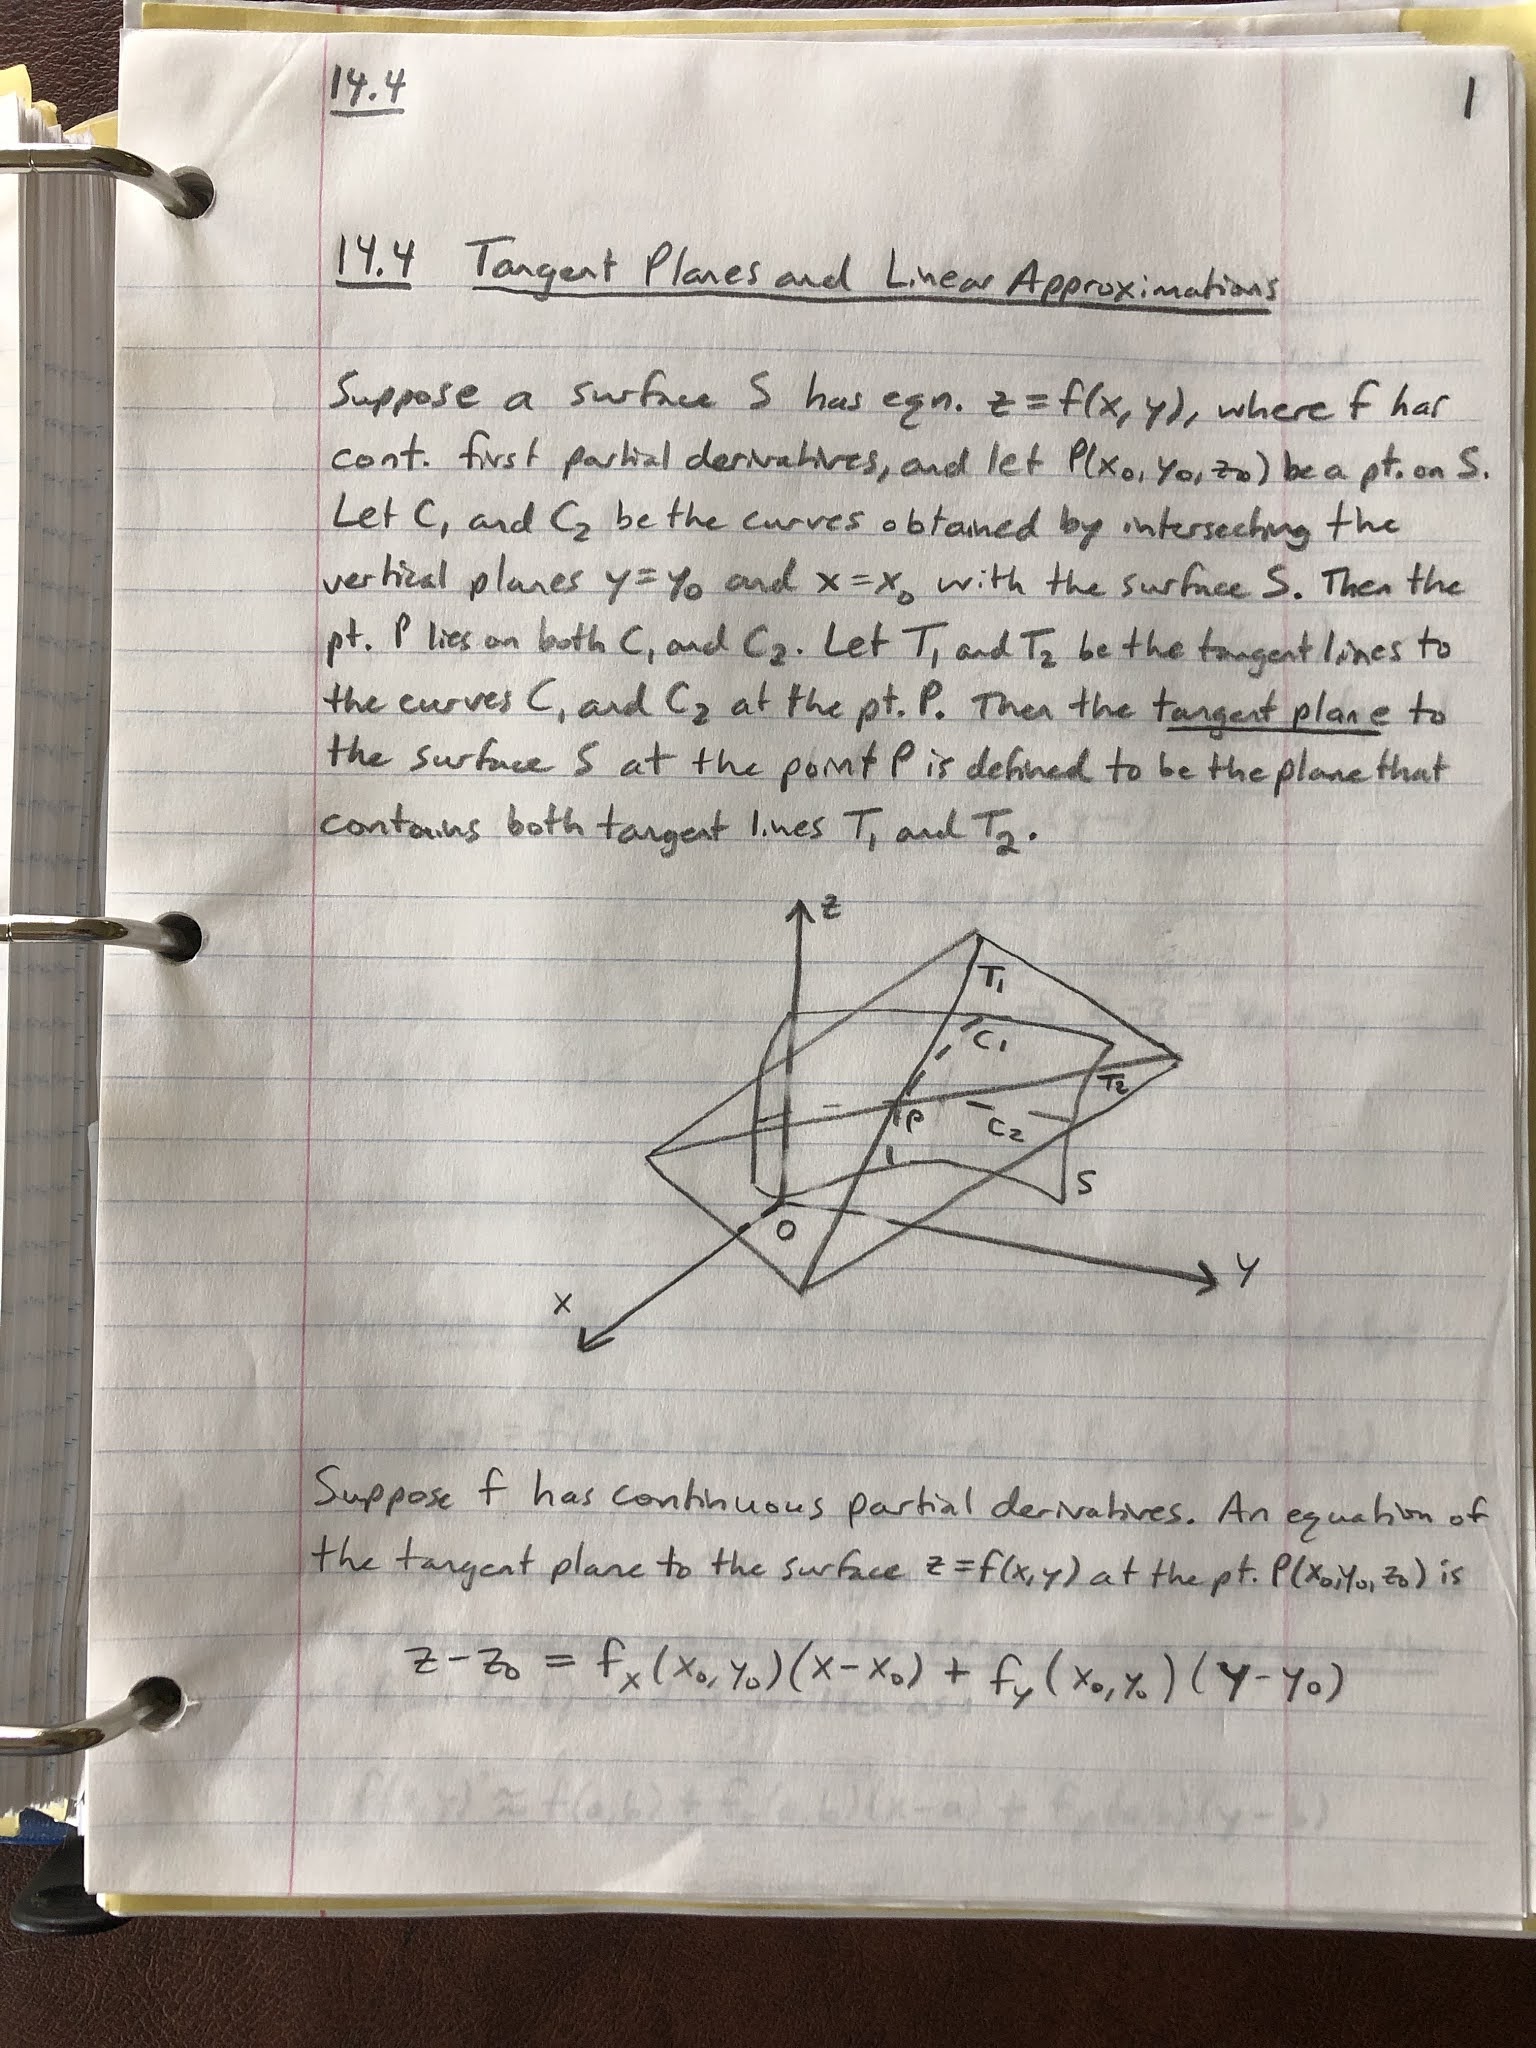 14.4
1
14.4 Tangent Planes and Linear Approximations
Suppose a surface S has eqn. z = f(x, y), where f has
cont. first partial derivatives, and let P(x₀, y₀, z₀) be a pt. on S.
Let C₁ and C₂ be the curves obtained by intersecting the
vertical planes y = y₀ and x = x₀ with the surface S. Then the
pt. P lies on both C₁ and C₂. Let T₁ and T₂ be the tangent lines to
the curves C₁ and C₂ at the pt. P. Then the tangent plane to
the surface S at the point P is defined to be the plane that
contains both tangent lines T₁ and T₂.
z
T₁
C₁
T₂
P
C₂
S
O
y
x
Suppose f has continuous partial derivatives. An equation of
the tangent plane to the surface z = f(x, y) at the pt. P(x₀, y₀, z₀) is
z - z₀ = fₓ(x₀, y₀)(x - x₀) + f_y(x₀, y₀)(y - y₀)